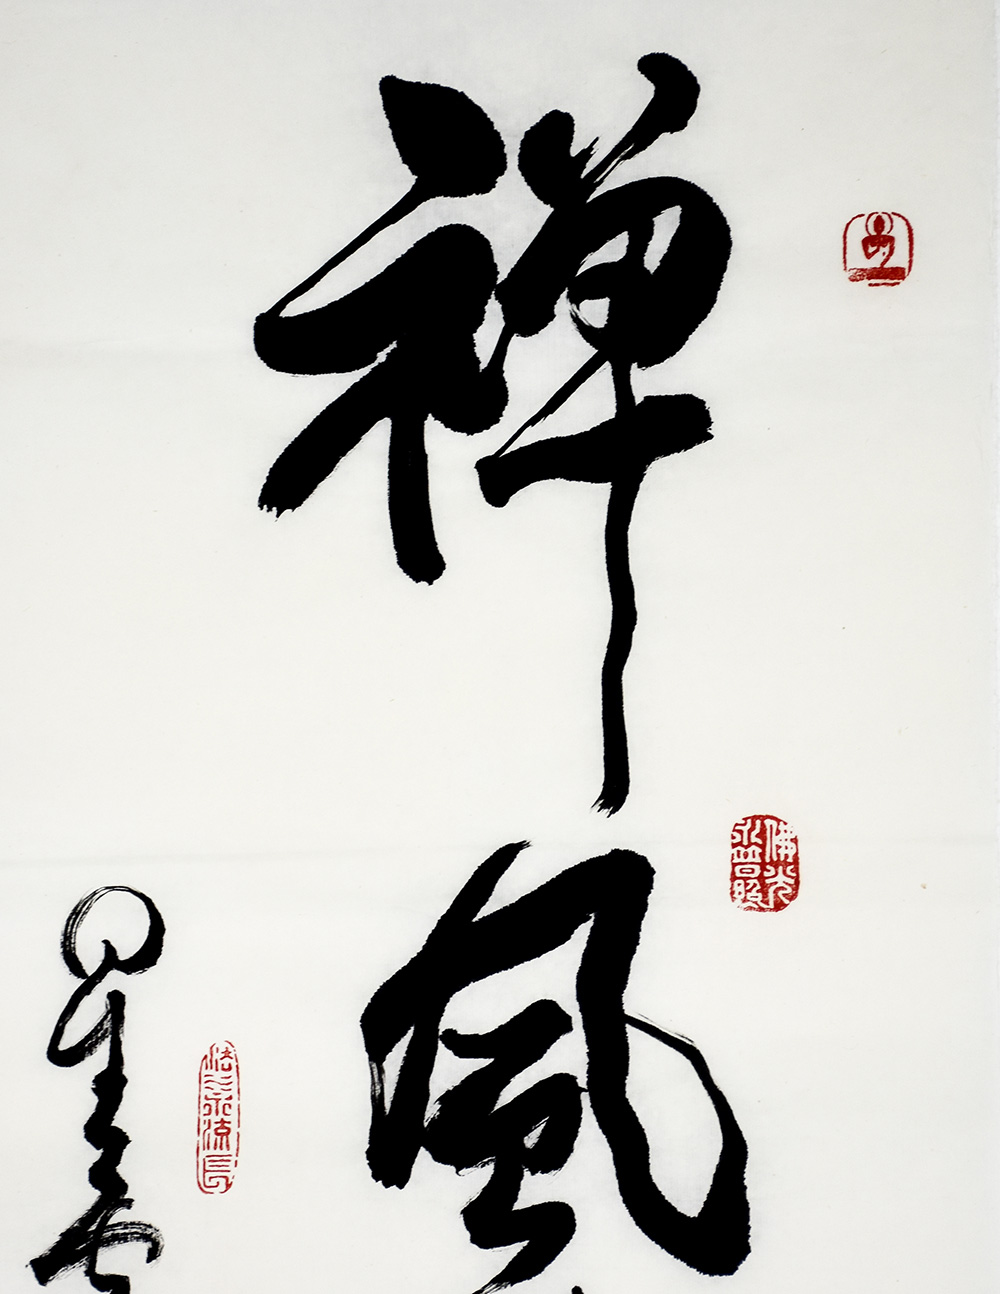 禅風
佛光
永普照
星雲
法水流長